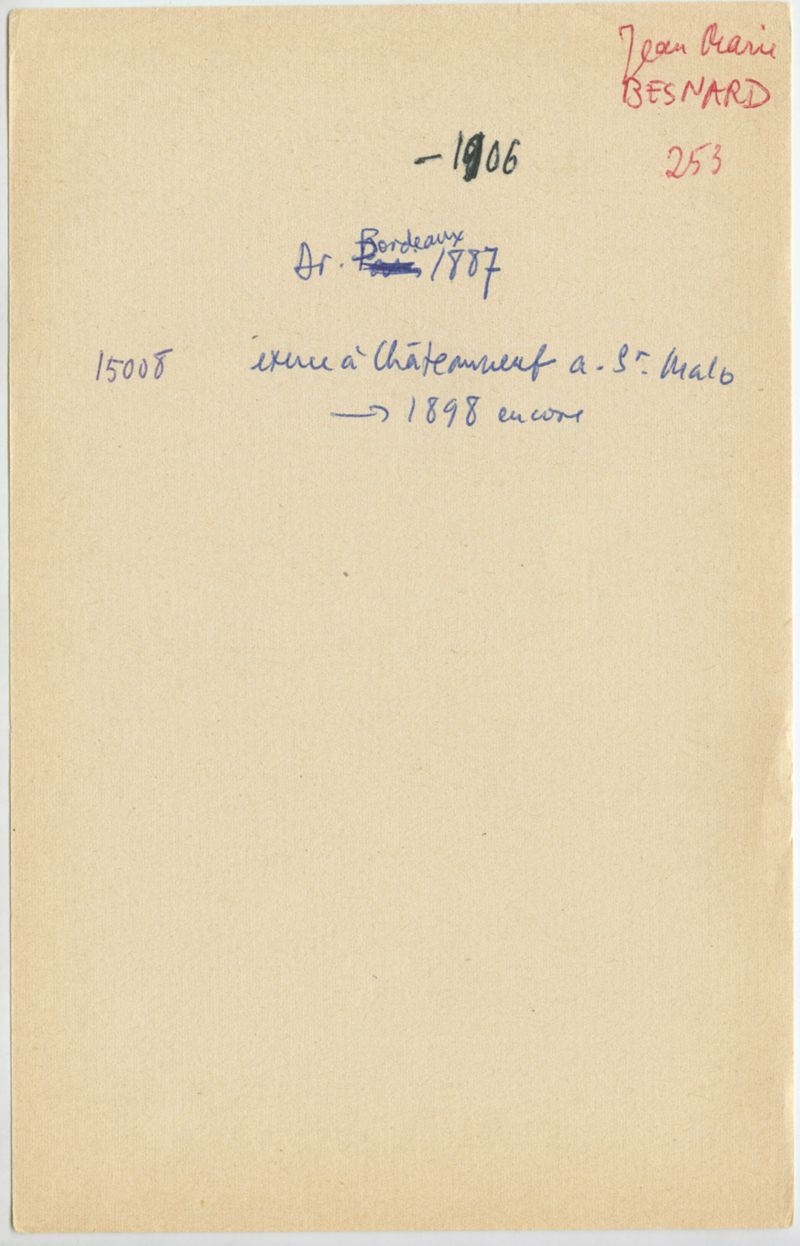 Jean Marie
BESNARD
253
– 1906
Dr. Bordeaux 1887
15008 exerce à Châteauneuf a. St. Malo
→ 1898 encore